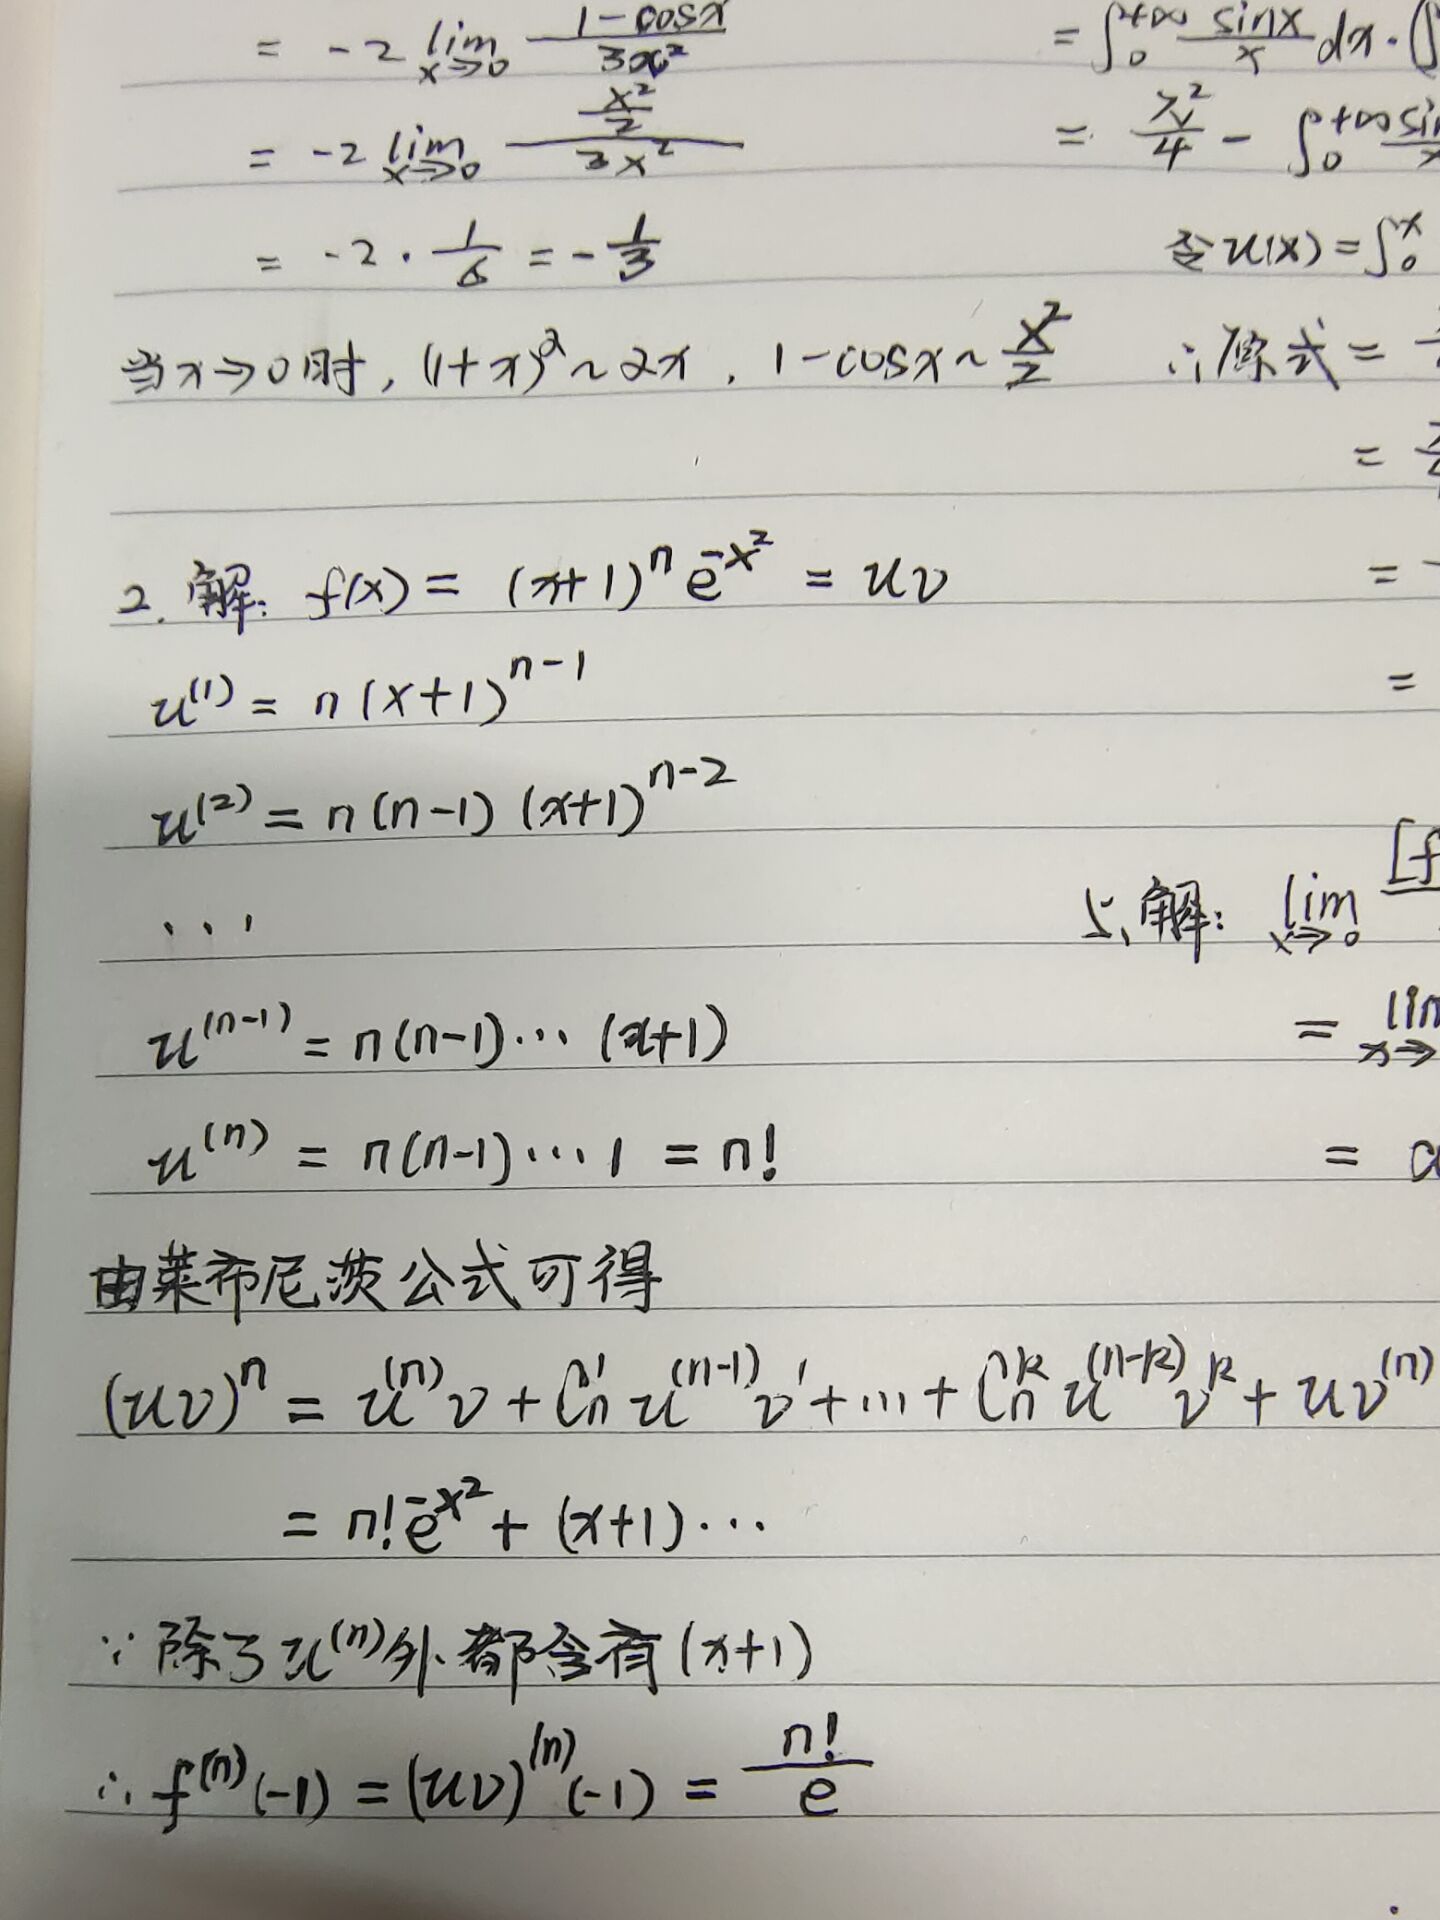 = -2 lim x→0 (1-cosx)/(3x²)
= -2 lim x→0 (x²/2)/(3x²)
= -2 · 1/6 = -1/3
当x→0时, (1+x)^2 ~ 2x , 1-cosx ~ x²/2
2. 解: f(x) = (x+1)^n e^{-x²} = uv
u^{(1)} = n(x+1)^{n-1}
u^{(2)} = n(n-1)(x+1)^{n-2}
...
u^{(n-1)} = n(n-1)···(x+1)
u^{(n)} = n(n-1)···1 = n!
由莱布尼茨公式可得
(uv)^n = u^{(n)}v + C_n^1 u^{(n-1)}v' + ... + C_n^k u^{(n-k)}v^k + uv^{(n)}
= n!e^{-x²} + (x+1)···
∵ 除了u^{(n)}外都含有(x+1)
∴ f^{(n)}(-1) = (uv)^{(n)}(-1) = n!/e
= ∫_0^{+∞} sinx/x dx · (
= π²/4 - ∫_0^{+∞} sin
令u(x) = ∫_0^x
∴原式 =
=
=
=
5、解: lim x→0 [f
= lim x→
= a